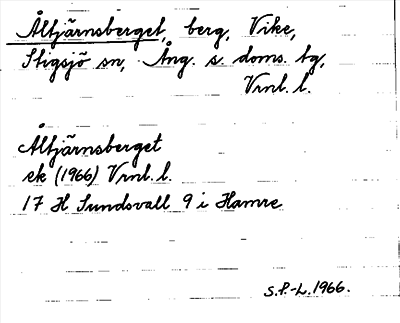 Åltjärnsberget, berg, Vike,
Stigsjö sn, Ång. s. doms. tg,
Vrnl. l.
Åltjärnsberget
ek (1966) Vrnl. l.
17 H Sundsvall 9 i Hamre
S.P.-L. 1966.